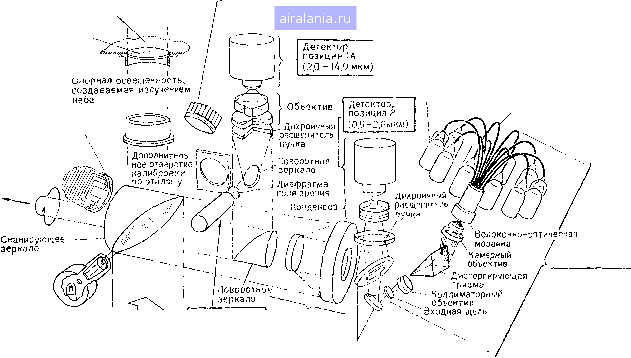 airalania.ru
Детектор,
позиция 1А
(2,0 – 14,0 мкм)
создаваемая излучением
неба
Объектив
Детектор,
позиция 2
Дихроичный
расщепитель
пучка
Дополнитель-
ное отверстие
калибровки
по эталону
Поворотное
зеркало
Диафрагма
поля зрения
Конденсор
Дихроичный
расщепитель
пучка
Сканирующее
зеркало
Волоконно-оптическая
мозаика
Камерный
объектив
Диспергирующая
призма
Коллиматорный
объектив
Входная щель
Поворотное
зеркало